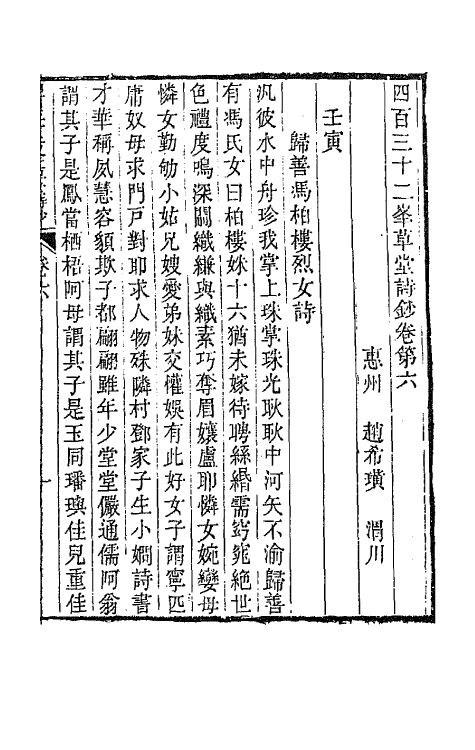 四百三十二峯草堂詩鈔卷第六
惠州　趙希璜　渭川
壬寅
歸善馮柏樓烈女詩
汎彼水中舟珍我掌上珠掌珠光耿耿中河矢不渝歸善
有馮氏女曰柏樓姝十六猶未嫁待聘絲繻需窈窕絕世
色禮度鳴深閨織縑與織素巧奪眉孃盧耶憐女婉孌母
憐女勤劬小姑兄嫂愛弟妹交懽娛有此好女子謂寧匹
庸奴母求門戸對耶求人物殊隣村鄧家子生小嫺詩書
才華稱夙慧容貌欺子都翩翩雖年少堂堂儼通儒阿翁
謂其子是鳳當栖梧阿母謂其子是玉同璠璵佳兒重佳
卷六